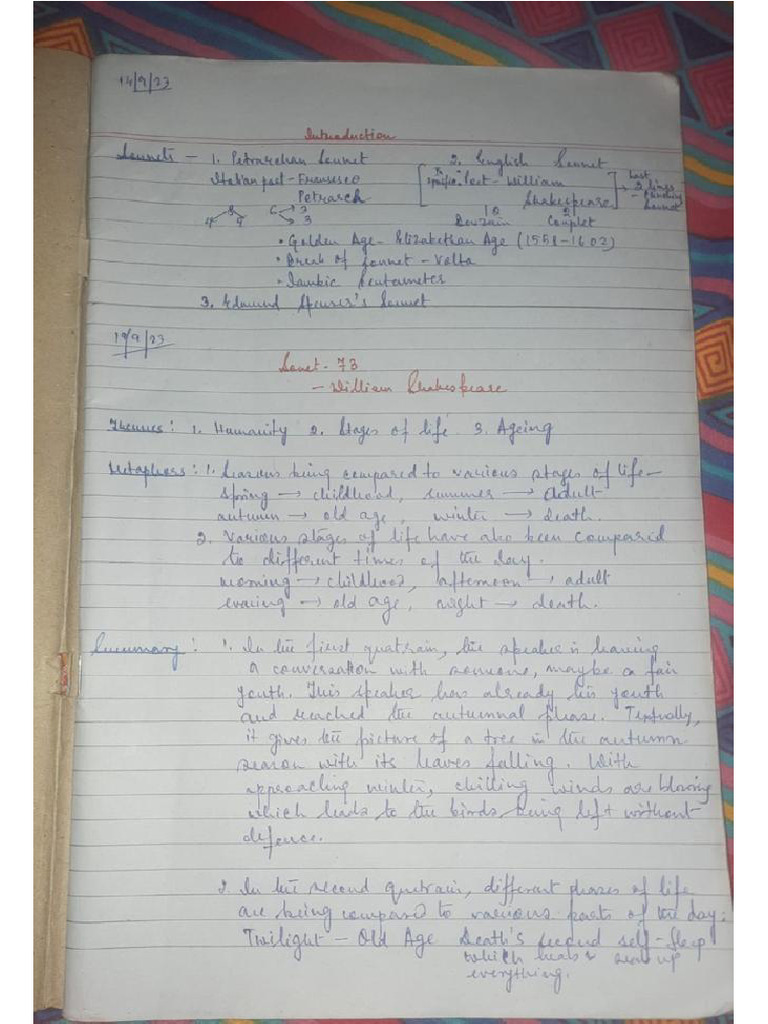 14/9/23
Introduction
Sonnets - 1. Petrarchan Sonnet 2. English Sonnet
Italian poet - Francesco Petrarch
Poet - William Shakespeare
Last 2 lines
Couplet
• Golden Age - Elizabethan Age (1558-1603)
• Break of Sonnet - Volta
• Iambic Pentameter
3. Edmund Spenser's Sonnet
19/9/23
Sonet - 73
- William Shakespeare
Themes: 1. Humanity 2. Stages of life 3. Ageing
Metaphors: 1. Seasons being compared to various stages of life -
spring → childhood, summer → adult
autumn → old age, winter → death.
2. Various stages of life have also been compared
to different times of the day.
morning → childhood, afternoon → adult
evening → old age, night → death.
Summary: 1. In the first quatrain, the speaker is having
a conversation with someone, maybe a fair
youth. This speaker has already his youth
and reached the autumnal phase. Textually,
it gives the picture of a tree in the autumn
season with its leaves falling. With
approaching winter, chilling winds are blowing
which leads to the birds being left without
defence.
2. In the second quatrain, different phases of life
are being compared to various parts of the day.
Twilight - Old Age Death's second self - Sleep
which heals & seals up
everything.